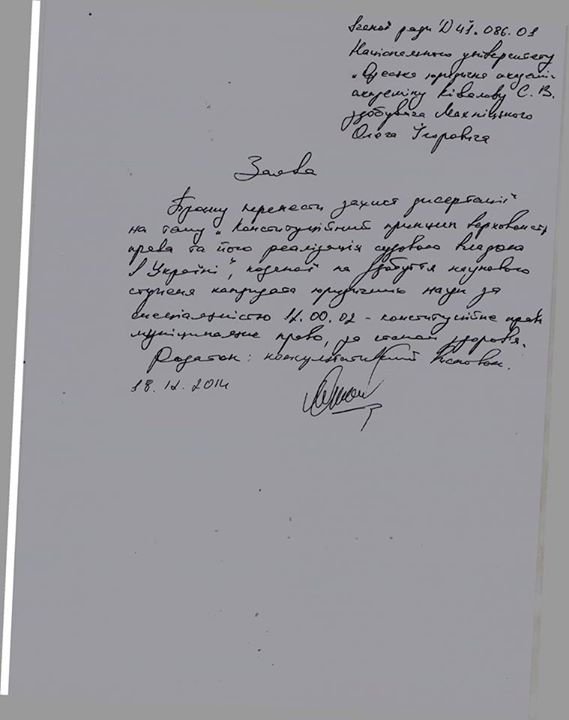 вченої ради Д 41.086.01
Національного університету
„Одеська юридична академія
академіку Ківалову С. В.
здобувача Махніцького
Олега Ігоровича
Заява
Прошу перенести захист дисертації
на тему „Конституційний принцип верховенств
права та його реалізація судовою владою
в Україні", поданої на здобуття наукового
ступеня кандидата юридичних наук за
спеціальністю 12.00.02 - конституційне право
муніципальне право, за станом здоров'я.
Додаток: консультативний висновок.
18.12.2014